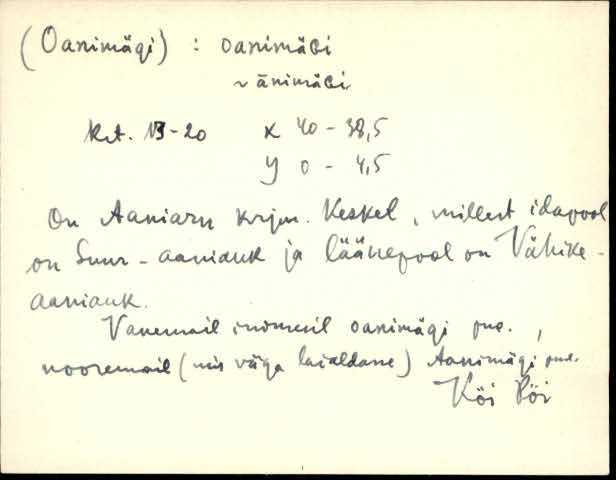 (Oanimägi) : oanimäGi
~ änimäGi
krt. 13-20 X 40 - 38,5
Y 0 - 4,5
On Aaniaru krjm. keskel, millest idapool
on Suur-aaniauk ja läänepool on Vähike-
aaniauk.
Vanemail inimesil oanimägi pne.,
nooremail (mis väga laialdane) Aanimägi pne.